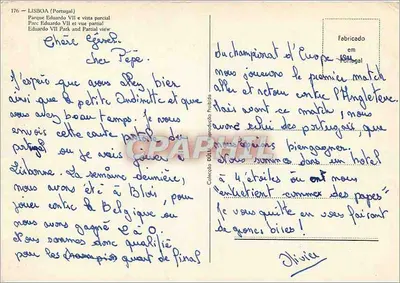 176 — LISBOA (Portugal)
Parque Eduardo VII e vista parcial
Parc Eduardo VII et vue partial
Eduardo VII Park and Partial view
Chère
cher Pépé.
J'espère que vous allez bien
ainsi que la petite et que
vous avez beau temps. Je vous
envois cette carte postale du
portugal ou je vais jouer à
Lisbonne. La semaine dernière,
nous avons été à Blois, pour
jouer contre la Belgique ou
nous avons gagné 2 à 0.
Nous sommes donc qualifié
pour les quart de final
du championat d'Europe
nous jouerons le premier match
aller et retour contre l'Angleterre
Mais avant ce match, nous
avons celui des portugais, que
nous
nous sommes dans un hotel
4 étoiles où ont nous
entretient comme des papes
Je vous quitte en vous faisant
de grosses bises!
Olivier
Fabricado
em
Portugal
CPAPHIL